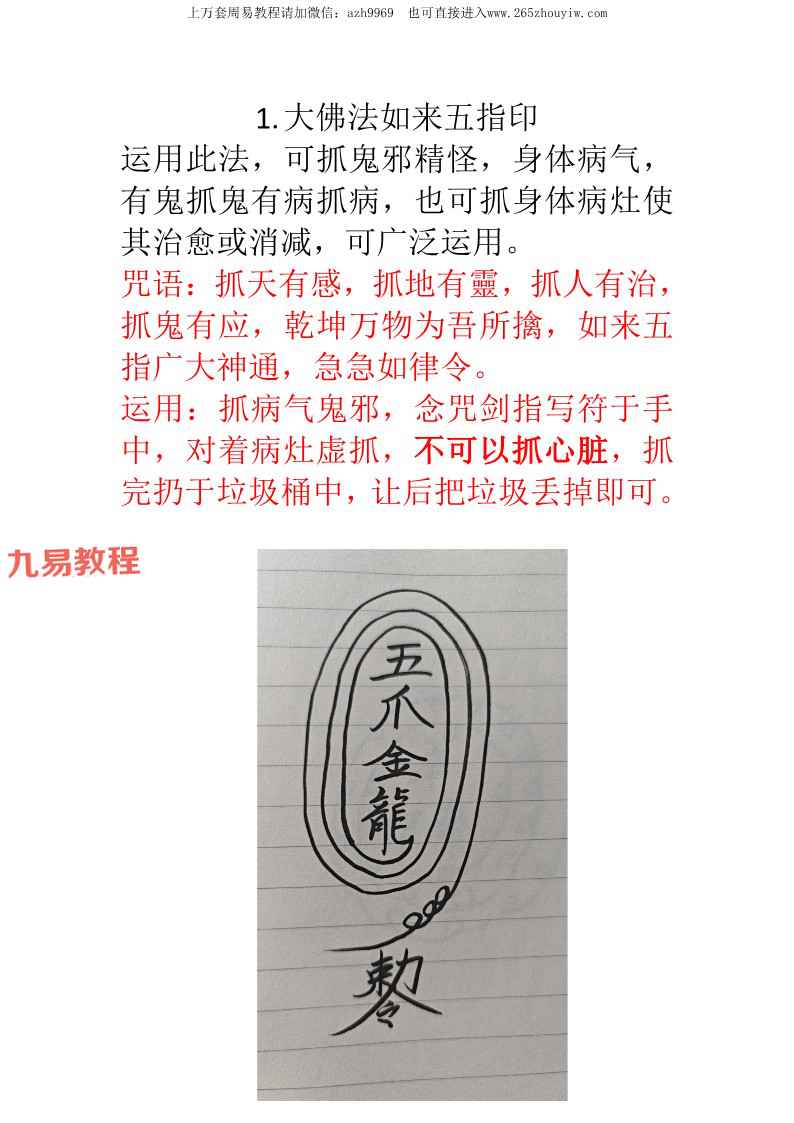 上万套周易教程请加微信：azh9969 也可直接进入www.265zhouyiw.com
1.大佛法如来五指印
运用此法，可抓鬼邪精怪，身体病气，
有鬼抓鬼有病抓病，也可抓身体病灶使
其治愈或消减，可广泛运用。
咒语：抓天有感，抓地有靈，抓人有治，
抓鬼有应，乾坤万物为吾所擒，如来五
指广大神通，急急如律令。
运用：抓病气鬼邪，念咒剑指写符于手
中，对着病灶虚抓，不可以抓心脏，抓
完扔于垃圾桶中，让后把垃圾丢掉即可。
九易教程
五
爪
金
龍
勅
令